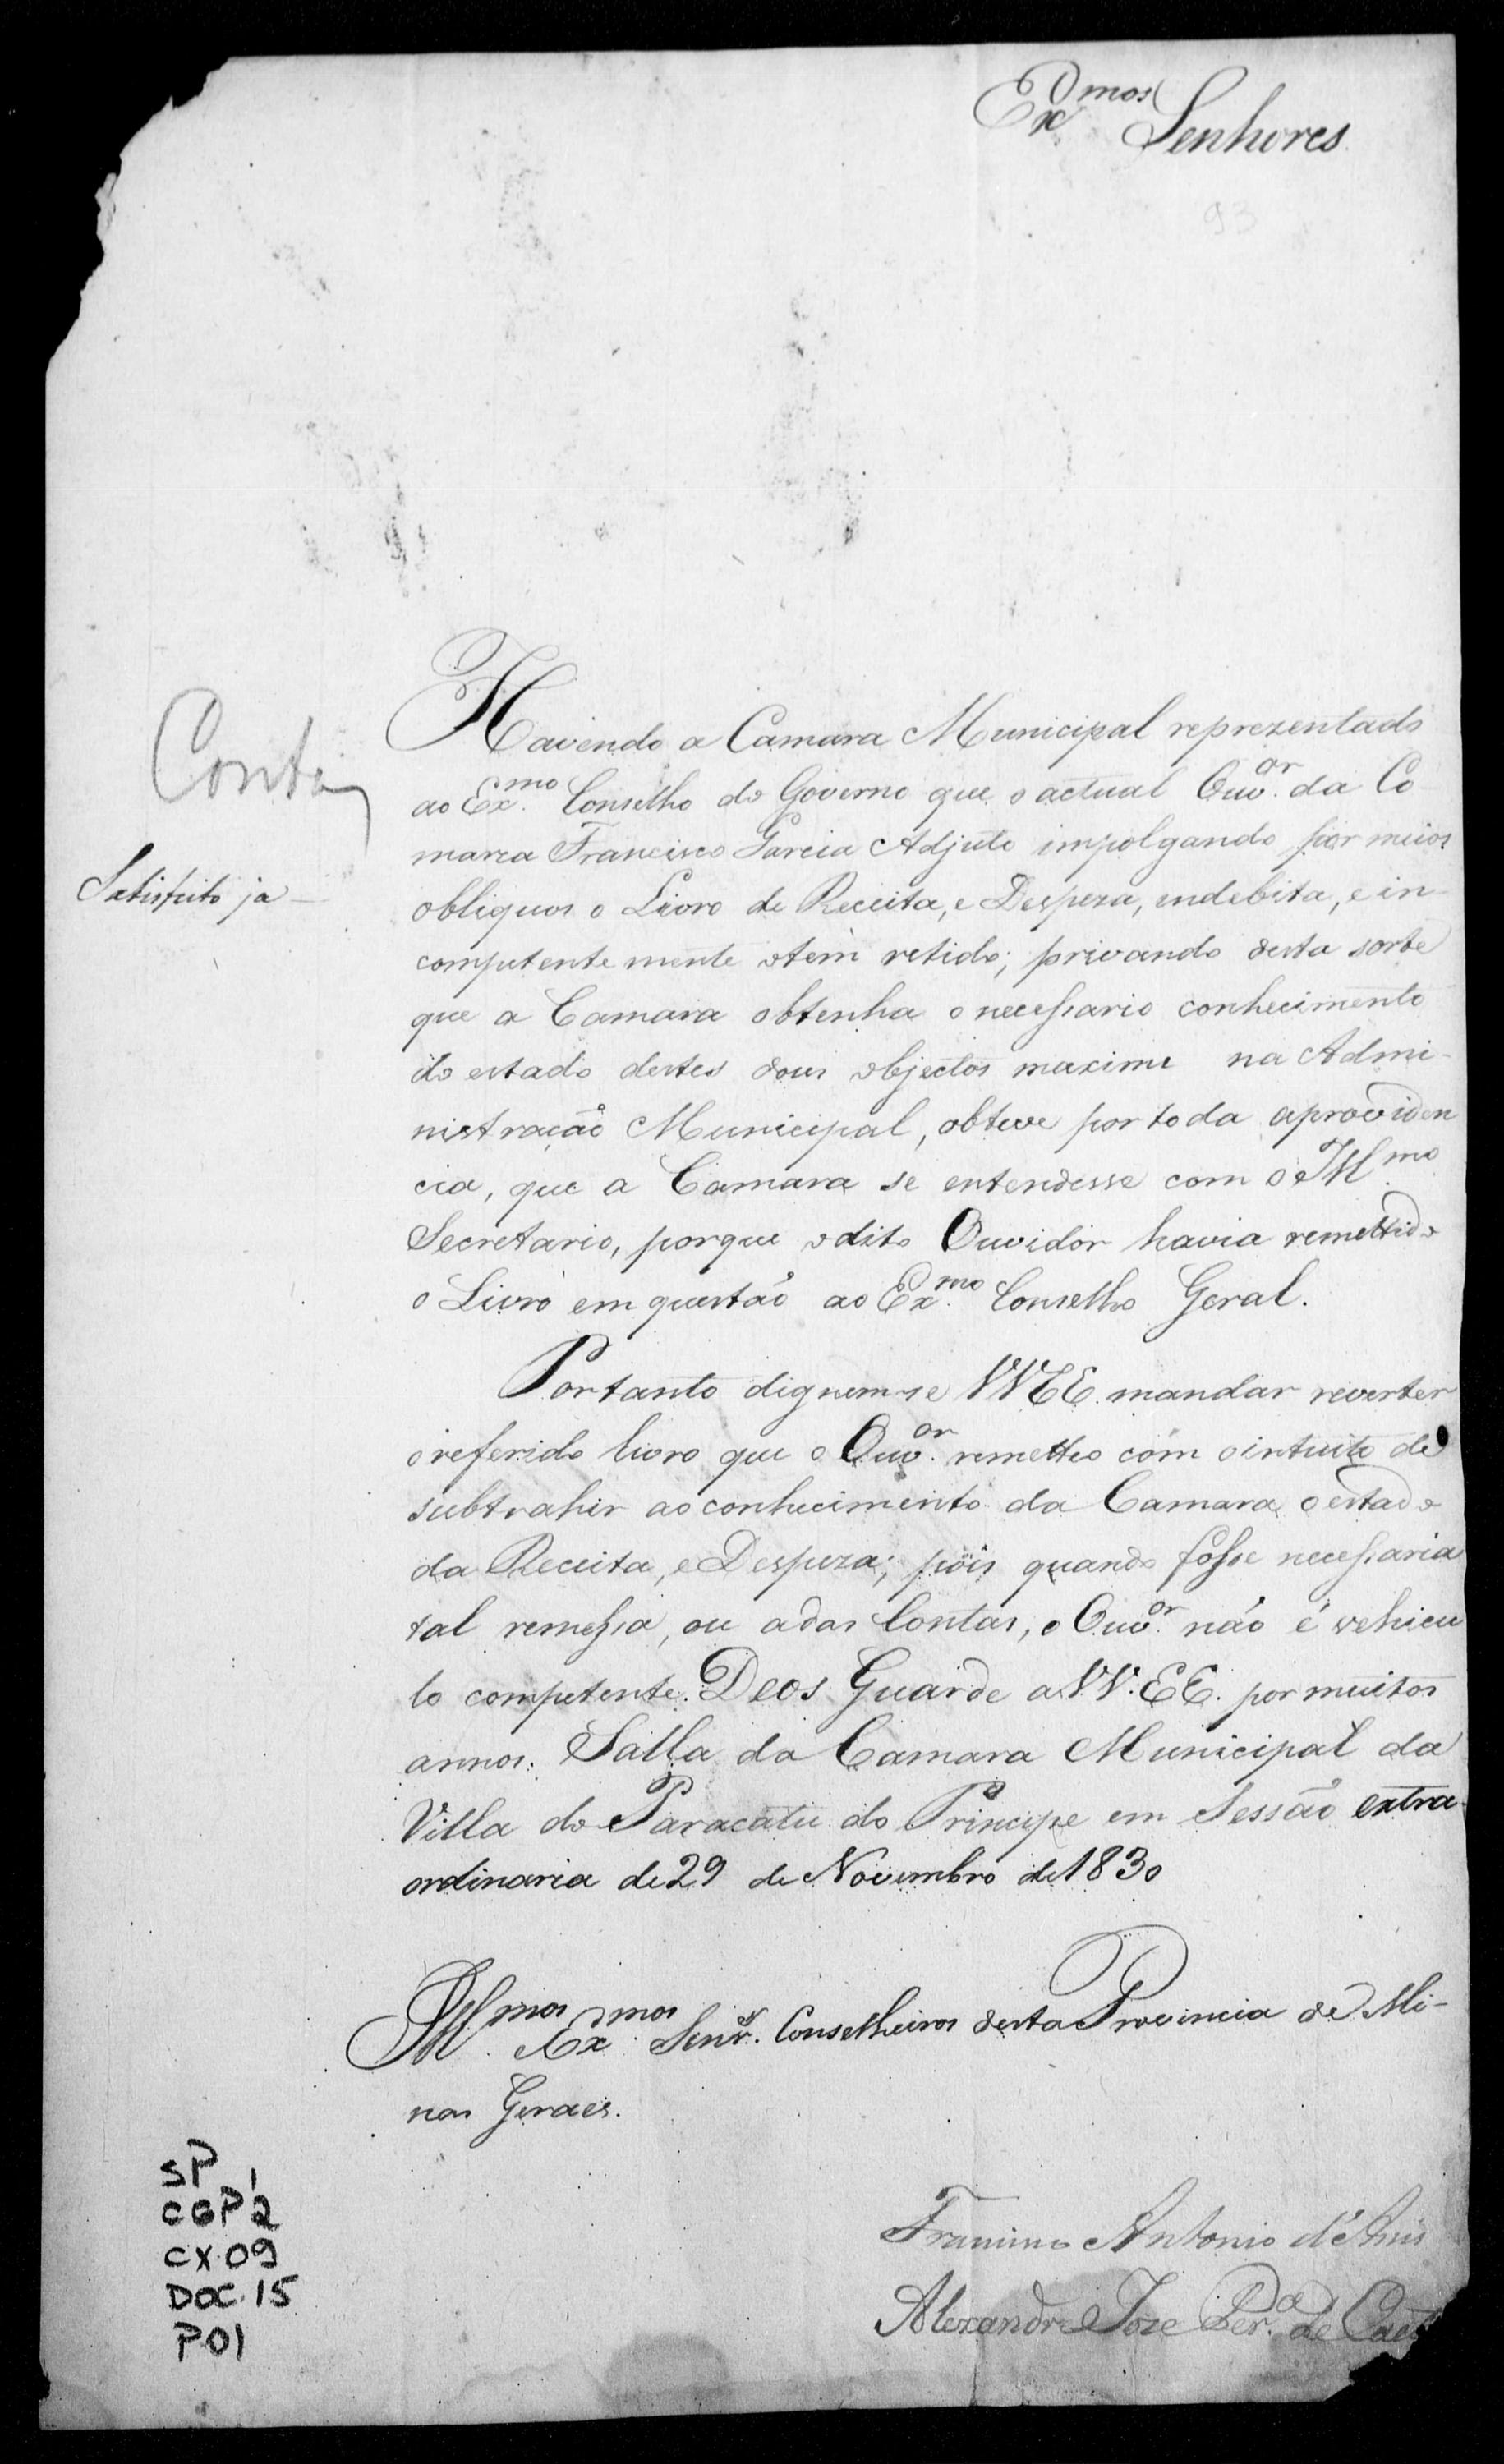 Ex.mos Senhores.
93
Havendo a Camara Municipal reprezentado
ao Ex.mo Conselho do Governo que o actual Ouv.or da Co
marca Francisco Garcia Adjuto impolgando por meios
obliquos o Livro de Receita, e Despeza, indebita, e in-
competente mente otem retido; privando desta sorte
que a Camara obtenha o necessario conhecimento
do estado destes dous objectos maxime na Admi-
nistração Municipal, obteve por toda aproviden
cia, que a Camara se entendesse com o Ill.mo
Secretario, porque odito Ouvidor havia remettido
o Livro em questão ao Ex.mo Conselho Geral.
Portanto dignem-se VVEE. mandar reverter
oreferido livro que o Ouv.or remetteo com ointuito de
subtrahir ao conhecimento da Camara oestado
da Receita, e Despeza; pois quando fosse necessaria
tal remessa, ou adas Contas, o Ouv.or não é vehicu
lo competente. Deos Guarde a VV.EE. por muitos
annos. Salla da Camara Municipal da
Villa do Paracatu do Principe em Sessão extra-
ordinaria de 29 de Novembro de 1830
Conta
Satisfeito ja —
Ill.mos Ex.mos Senr.s Conselheiros desta Provincia de Mi-
nas Geraes.
Antonio d'Assis
Alexandre Joze Per.a de
SP 1
CGP 2
CX.09
DOC.15
P01